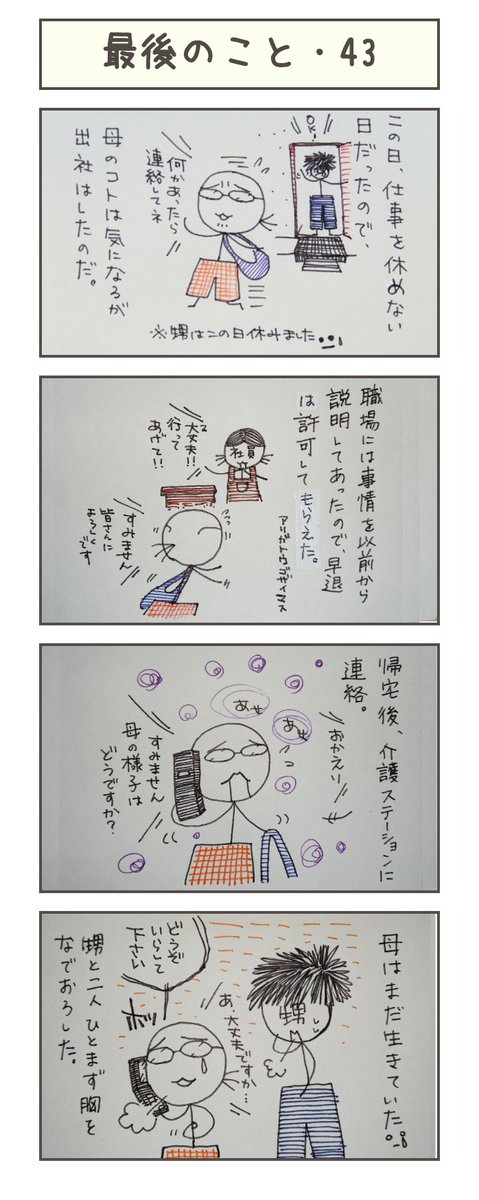 最後のこと・43
この日、仕事を休めない
日だったので、
OK!
何かあったら
連絡してネ
母のコトは気になるが
出社はしたのだ。
※甥はこの日休みました
職場には事情を以前から
説明してあったので、早退
は許可してもらえた。
社員
大丈夫!!
行って
あげて!!
アリガトウゴザイマス
すみません
皆さんに
よろしくです
帰宅後、介護ステーションに
連絡。
おかえり
あせ
あせ
すみません
母の様子は
どうですか?
母はまだ生きていた。
甥
どうぞ
いらして
下さい
あ、大丈夫ですか…
ホッ
甥と二人ひとまず胸を
なでおろした。